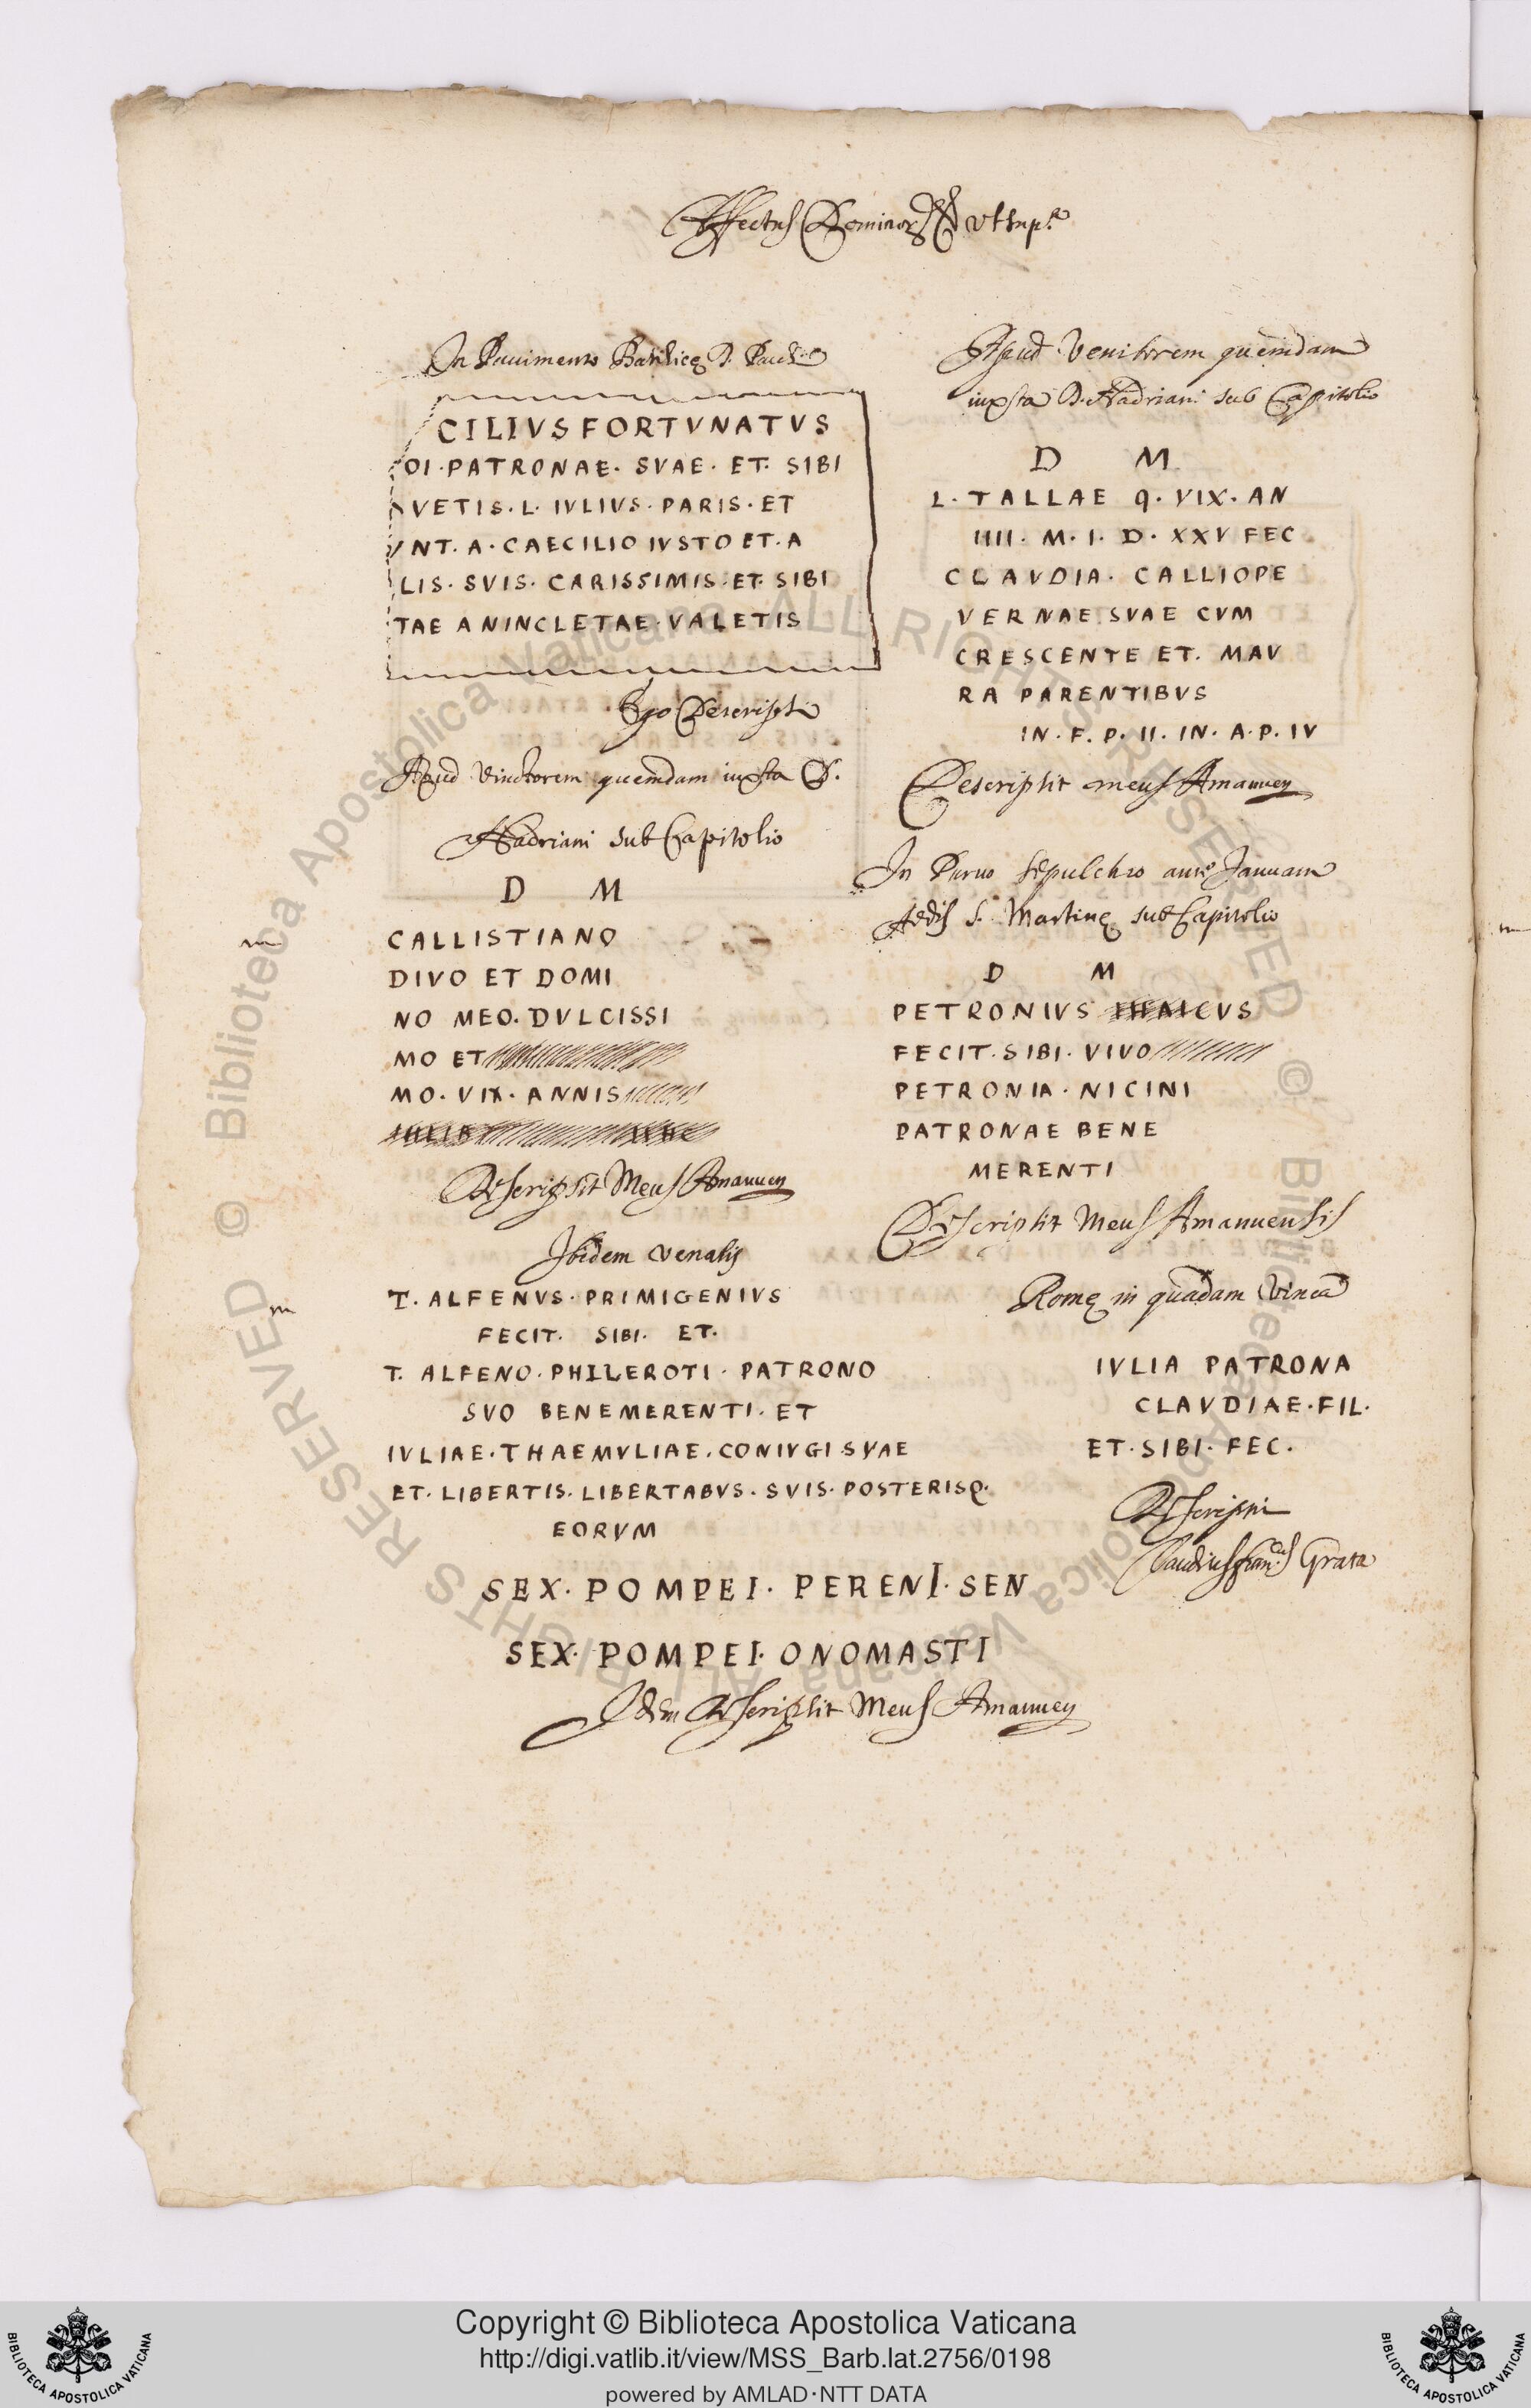 Affectus Dominor vt sup.ª
In Pauimento Basilicę D. Pauli
CILIVS FORTVNATVS
OI·PATRONAE·SVAE·ET·SIBI
VETIS·L·IVLIVS·PARIS·ET
VNT·A·CAECILIO IVSTO ET·A
LIS·SVIS·CARISSIMIS·ET·SIBI
TAE ANINCLETAE·VALETIS
Ego Descripsi
Apud Vinctorem quemdam iuxta D.
Hadriani sub Capitolio
D M
CALLISTIANO
DIVO ET DOMI
NO MEO·DVLCISSI
MO ET
MO·VIX·ANNIS
Descripsit Meus Amanuen
Ibidem venalis
T·ALFENVS·PRIMIGENIVS
FECIT· SIBI· ET·
T. ALFENO·PHILEROTI·PATRONO
SVO BENEMERENTI·ET
IVLIAE·THAEMVLIAE·CONIVGI·SVAE
ET·LIBERTIS·LIBERTABVS·SVIS·POSTERISQ·
EORVM
SEX·POMPEI·PERENI·SEN
SEX·POMPEI·ONOMASTI
Idem Descripsit Meus Amanuen
Apud Venitorem quemdam
iuxta D. Hadriani sub Capitolio
D M
L·TALLAE Q·VIX·AN
IIII·M·I·D·XXV FEC
CLAVDIA·CALLIOPE
VERNAE SVAE CVM
CRESCENTE ET·MAV
RA PARENTIBVS
IN·F·P·II·IN·A·P·IV
Descripsit meus Amanuen
In Paruo sepulchro ante Januam
Aedis S. Martinę sub Capitolio
D M
PETRONIVS CVS
FECIT·SIBI·VIVO
PETRONIA·NICINI
PATRONAE BENE
MERENTI
Descripsit Meus Amanuensis
Romę in quadam Vinea
IVLIA PATRONA
CLAVDIAE·FIL·
ET·SIBI·FEC·
Descripsi
Claudius Fran.cus Grata
m
m
Copyright © Biblioteca Apostolica Vaticana
http://digi.vatlib.it/view/MSS_Barb.lat.2756/0198
powered by AMLAD·NTT DATA
BIBLIOTECA APOSTOLICA VATICANA
BIBLIOTECA APOSTOLICA VATICANA
© Biblioteca Apostolica Vaticana ALL RIGHTS RESERVED
© Biblioteca Apostolica Vaticana ALL RIGHTS RESERVED